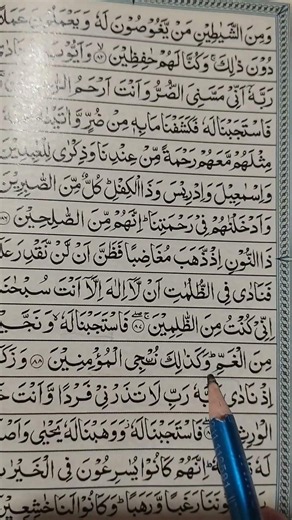 وَمِنَ الشَّيٰطِيْنِ مَنْ يَّغُوْصُوْنَ لَهٗ وَيَعْمَلُوْنَ عَمَلًا
دُوْنَ ذٰلِكَ ۚ وَكُنَّا لَهُمْ حٰفِظِيْنَ ۙ﴿۸۲﴾ وَاَيُّوْبَ
رَبَّهٗۤ اَنِّيْ مَسَّنِيَ الضُّرُّ وَاَنْتَ اَرْحَمُ
فَاسْتَجَبْنَا لَهٗ فَكَشَفْنَا مَا بِهٖ مِنْ ضُرٍّ
مِثْلَهُمْ مَّعَهُمْ رَحْمَةً مِّنْ عِنْدِنَا وَذِكْرٰى لِلْعٰبِدِيْنَ
وَاِسْمٰعِيْلَ وَاِدْرِيْسَ وَذَا الْكِفْلِ ؕ كُلٌّ مِّنَ الصّٰبِرِيْنَ
وَاَدْخَلْنٰهُمْ فِيْ رَحْمَتِنَا ؕ اِنَّهُمْ مِّنَ الصّٰلِحِيْنَ ﴿۸۶﴾
ذَا النُّوْنِ اِذْ ذَّهَبَ مُغَاضِبًا فَظَنَّ اَنْ لَّنْ نَّقْدِرَ
فَنَادٰى فِي الظُّلُمٰتِ اَنْ لَّاۤ اِلٰهَ اِلَّاۤ اَنْتَ سُبْحٰنَكَ
اِنِّيْ كُنْتُ مِنَ الظّٰلِمِيْنَ ﴿۸۷﴾ فَاسْتَجَبْنَا لَهٗ ۙ وَنَجَّيْنٰهُ
مِنَ الْغَمِّ ؕ وَكَذٰلِكَ نُـْۨجِي الْمُؤْمِنِيْنَ ﴿۸۸﴾
اِذْ نَادٰى رَبَّهٗ رَبِّ لَا تَذَرْنِيْ فَرْدًا وَّاَنْتَ
فَاسْتَجَبْنَا لَهٗ ۫ وَوَهَبْنَا لَهٗ يَحْيٰى
لَهٗ اِنَّهُمْ كَانُوْا يُسٰرِعُوْنَ فِي
رَغَبًا وَّرَهَبًا ؕ وَكَانُوْا لَنَا خٰشِعِيْنَ